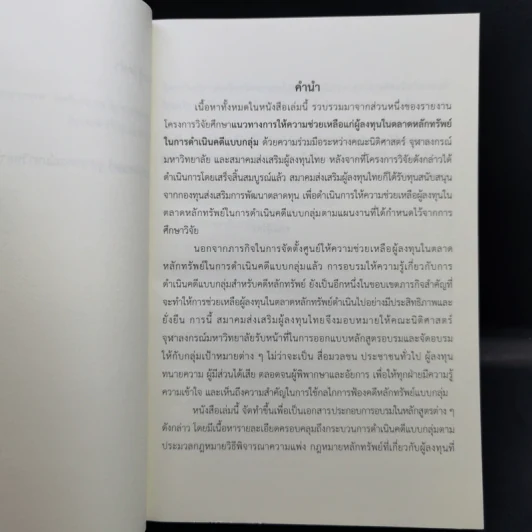 คำนำ
เนื้อหาทั้งหมดในหนังสือเล่มนี้ รวบรวมมาจากส่วนหนึ่งของรายงาน
โครงการวิจัยศึกษาแนวทางการให้ความช่วยเหลือแก่ผู้ลงทุนในตลาดหลักทรัพย์
ในการดำเนินคดีแบบกลุ่ม ด้วยความร่วมมือระหว่างคณะนิติศาสตร์ จุฬาลงกรณ์
มหาวิทยาลัย และสมาคมส่งเสริมผู้ลงทุนไทย หลังจากที่โครงการวิจัยดังกล่าวได้
ดำเนินการโดยเสร็จสิ้นสมบูรณ์แล้ว สมาคมส่งเสริมผู้ลงทุนไทยก็ได้รับทุนสนับสนุน
จากกองทุนส่งเสริมการพัฒนาตลาดทุน เพื่อดำเนินการให้ความช่วยเหลือผู้ลงทุนใน
ตลาดหลักทรัพย์ในการดำเนินคดีแบบกลุ่มตามแผนงานที่ได้กำหนดไว้จากการ
ศึกษาวิจัย
นอกจากภารกิจในการจัดตั้งศูนย์ให้ความช่วยเหลือผู้ลงทุนในตลาด
หลักทรัพย์ในการดำเนินคดีแบบกลุ่มแล้ว การอบรมให้ความรู้เกี่ยวกับการ
ดำเนินคดีแบบกลุ่มสำหรับคดีหลักทรัพย์ ยังเป็นอีกหนึ่งในขอบเขตภารกิจสำคัญที่
จะทำให้การช่วยเหลือผู้ลงทุนในตลาดหลักทรัพย์ดำเนินไปอย่างมีประสิทธิภาพและ
ยั่งยืน การนี้ สมาคมส่งเสริมผู้ลงทุนไทยจึงมอบหมายให้คณะนิติศาสตร์
จุฬาลงกรณ์มหาวิทยาลัยรับหน้าที่ในการออกแบบหลักสูตรอบรมและจัดอบรม
ให้กับกลุ่มเป้าหมายต่าง ๆ ไม่ว่าจะเป็น สื่อมวลชน ประชาชนทั่วไป ผู้ลงทุน
ทนายความ ผู้มีส่วนได้เสีย ตลอดจนผู้พิพากษาและอัยการ เพื่อให้ทุกฝ่ายมีความรู้
ความเข้าใจ และเห็นถึงความสำคัญในการใช้กลไกการฟ้องคดีหลักทรัพย์แบบกลุ่ม
หนังสือเล่มนี้ จัดทำขึ้นเพื่อเป็นเอกสารประกอบการอบรมในหลักสูตรต่าง ๆ
ดังกล่าว โดยมีเนื้อหารายละเอียดครอบคลุมถึงกระบวนการดำเนินคดีแบบกลุ่มตาม
ประมวลกฎหมายวิธีพิจารณาความแพ่ง กฎหมายหลักทรัพย์ที่เกี่ยวกับผู้ลงทุนที่